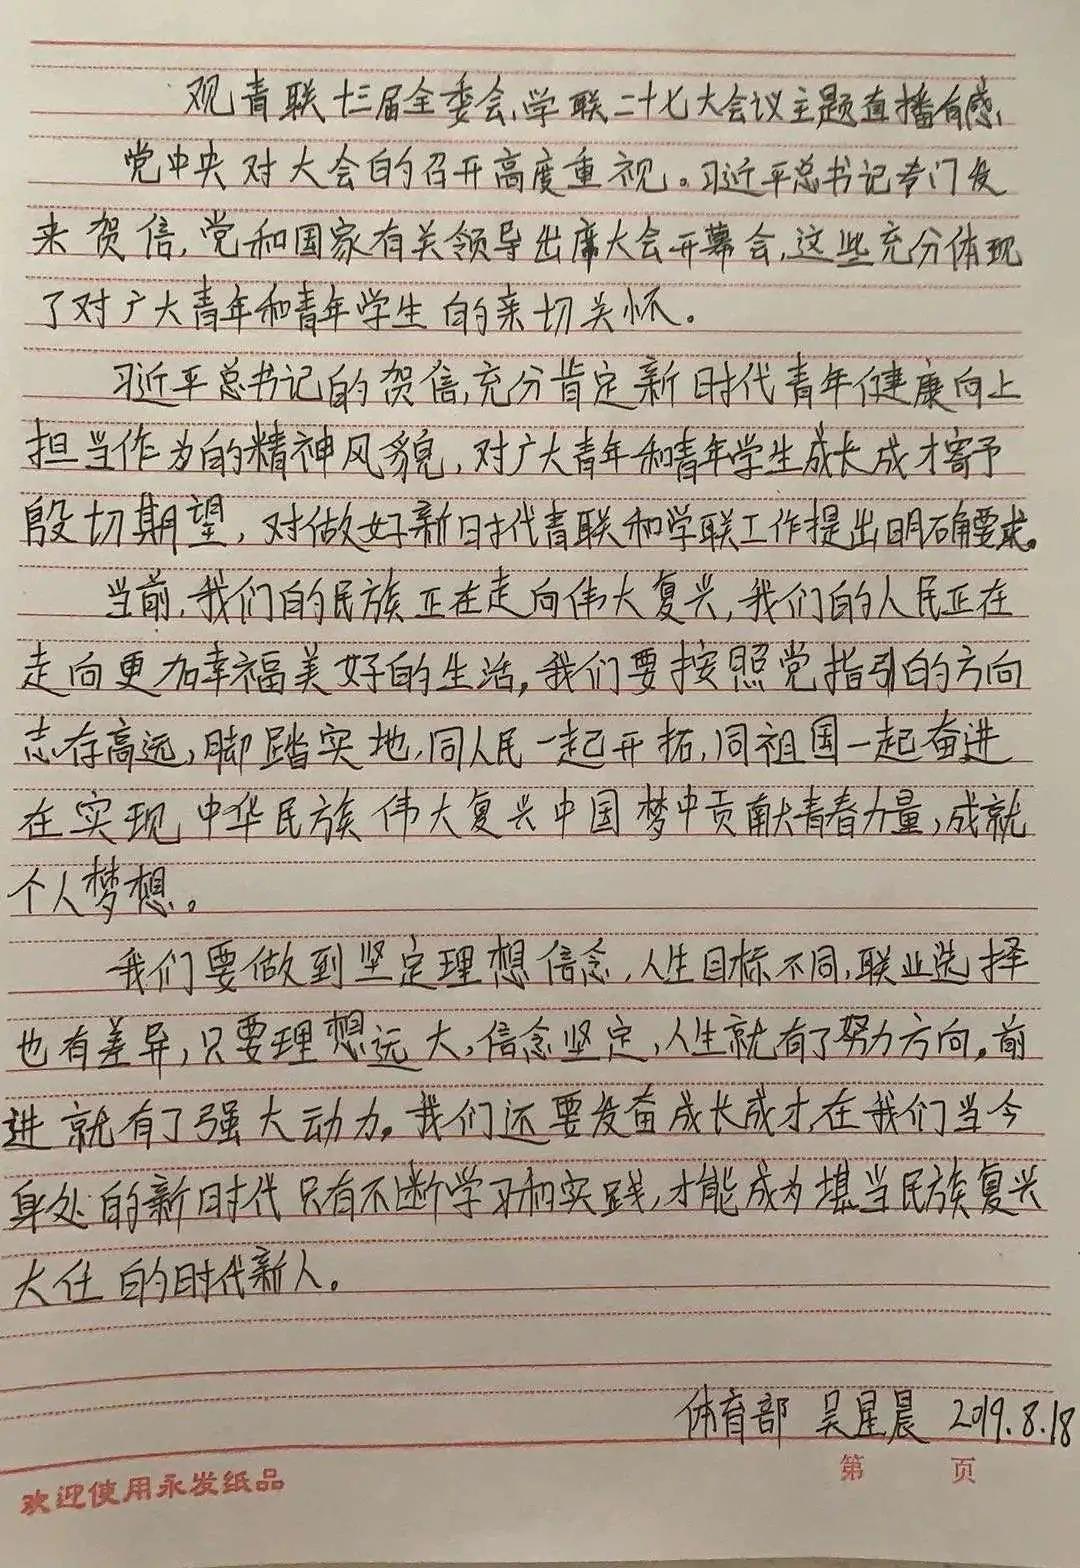 观青联十三届全委会、学联二十七大会议主题直播有感
党中央对大会的召开高度重视。习近平总书记专门发
来贺信,党和国家有关领导出席大会开幕会,这些充分体现
了对广大青年和青年学生的亲切关怀。
习近平总书记的贺信,充分肯定新时代青年健康向上
担当作为的精神风貌,对广大青年和青年学生成长成才寄予
殷切期望,对做好新时代青联和学联工作提出明确要求。
当前,我们的民族正在走向伟大复兴,我们的人民正在
走向更加幸福美好的生活,我们要按照党指引的方向
志存高远,脚踏实地,同人民一起开拓,同祖国一起奋进
在实现中华民族伟大复兴中国梦中贡献青春力量,成就
个人梦想。
我们要做到坚定理想信念,人生目标不同,联业选择
也有差异,只要理想远大,信念坚定,人生就有了努力方向。前
进就有了强大动力。我们还要发奋成长成才,在我们当今
身处的新时代只有不断学习和实践,才能成为堪当民族复兴
大任的时代新人。
体育部 吴星晨 2019.8.18
第 页
欢迎使用永发纸品